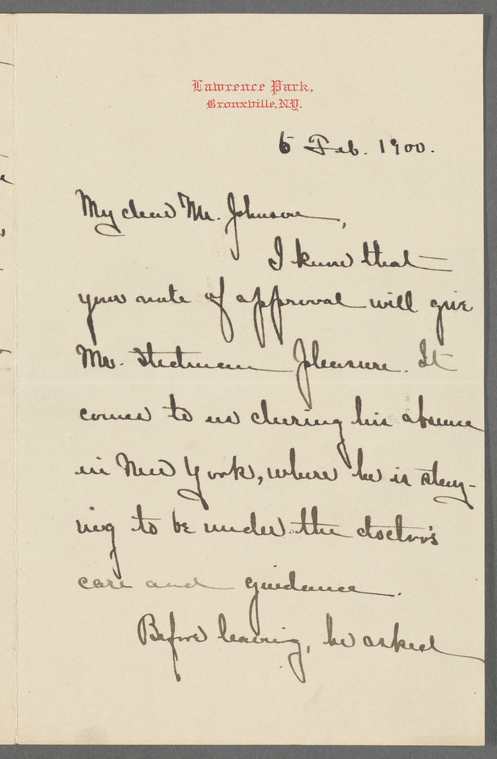 Lawrence Park,
Bronxville, N.Y.
6 Feb. 1900.
My dear Mr. Johnson,
I know that
your note of approval will give
Mr. Stedman pleasure. It
comes to us during his absence
in New York, where he is stay-
ing to be under the doctor's
care and guidance.
Before leaving, he asked